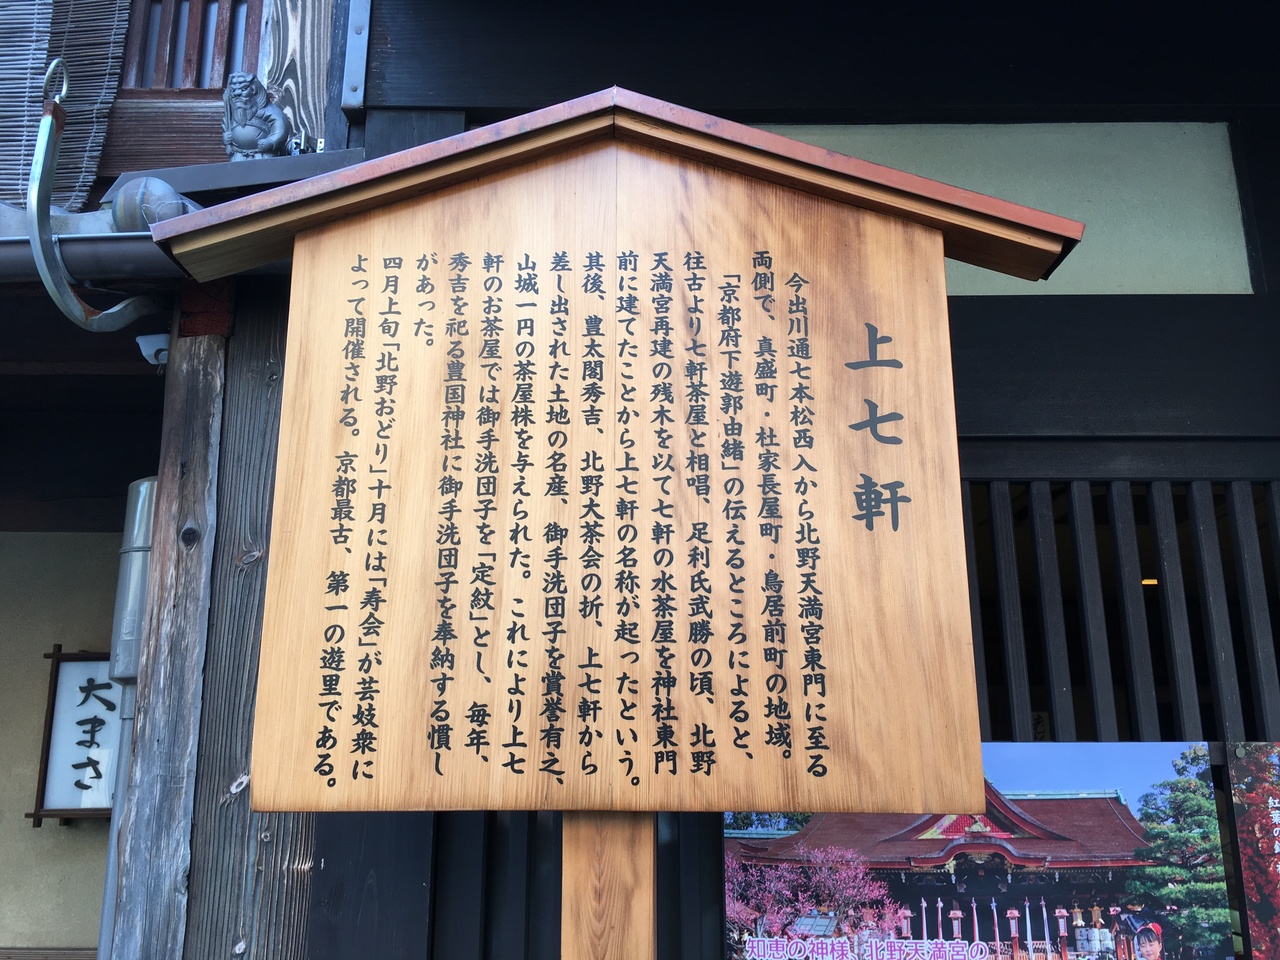 上七軒
今出川通七本松西入から北野天満宮東門に至る
両側で、真盛町・社家長屋町・鳥居前町の地域。
「京都府下遊郭由緒」の伝えるところによると、
往古より七軒茶屋と相唱、足利氏武勝の頃、北野
天満宮再建の残木を以て七軒の水茶屋を神社東門
前に建てたことから上七軒の名称が起ったという。
其後、豊太閤秀吉、北野大茶会の折、上七軒から
差し出された土地の名産、御手洗団子を賞誉有之、
山城一円の茶屋株を与えられた。これにより上七
軒のお茶屋では御手洗団子を「定紋」とし、毎年、
秀吉を祀る豊国神社に御手洗団子を奉納する慣し
があった。
四月上旬「北野おどり」十月には「寿会」が芸妓衆に
よって開催される。京都最古、第一の遊里である。
大まさ
知恵の神様、北野天満宮の